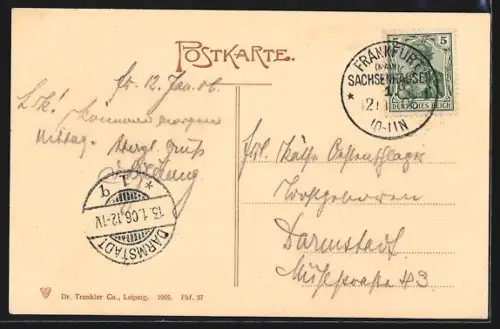 POSTKARTE.
fr. 12 Jan. 06.
L. K! Kommen morgen
Mittag. Herzl. Gruß
FRANKFURT
SACHSENHAUSEN
* 1
12.1
10-11N
5 5
DEUTSCHES REICH
Frl. Käthe
Wohlgeboren
Darmstadt
Mühlstraße 43
* 1 b
13.1.06.12-1V
DARMSTADT
Dr. Trenkler Co., Leipzig. 1905. Fkf. 37